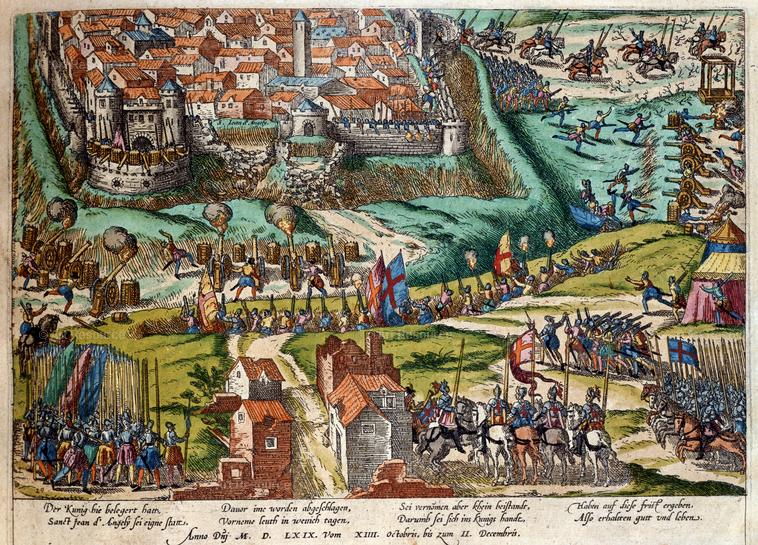 S. Ioan d' Angely
Der Kunig hie belegert hatt,
Sanct Jean d' Angely sei eigne statt.
Dauor ime worden abgeschlagen,
Vorneme leuth in wenich tagen,
Sei vernomen aber khein beistandt,
Darumb sei sich ins Kunigs handt,
Habin auf diese frist ergeben.
Also erhalten gutt vnd leben.
Anno Dñj M. D. LXIX. Vom XIIII. Octobris. bis zum II. Decembris.